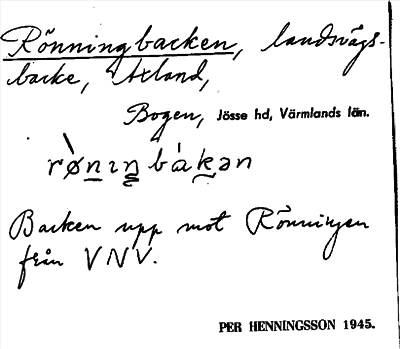 Rönningbacken, landsvägs-
backe, Axland,
Bogen, Jösse hd, Värmlands län.
rø̀nɪŋbákən
Backen upp mot Rönningen
från VNV.
PER HENNINGSSON 1945.